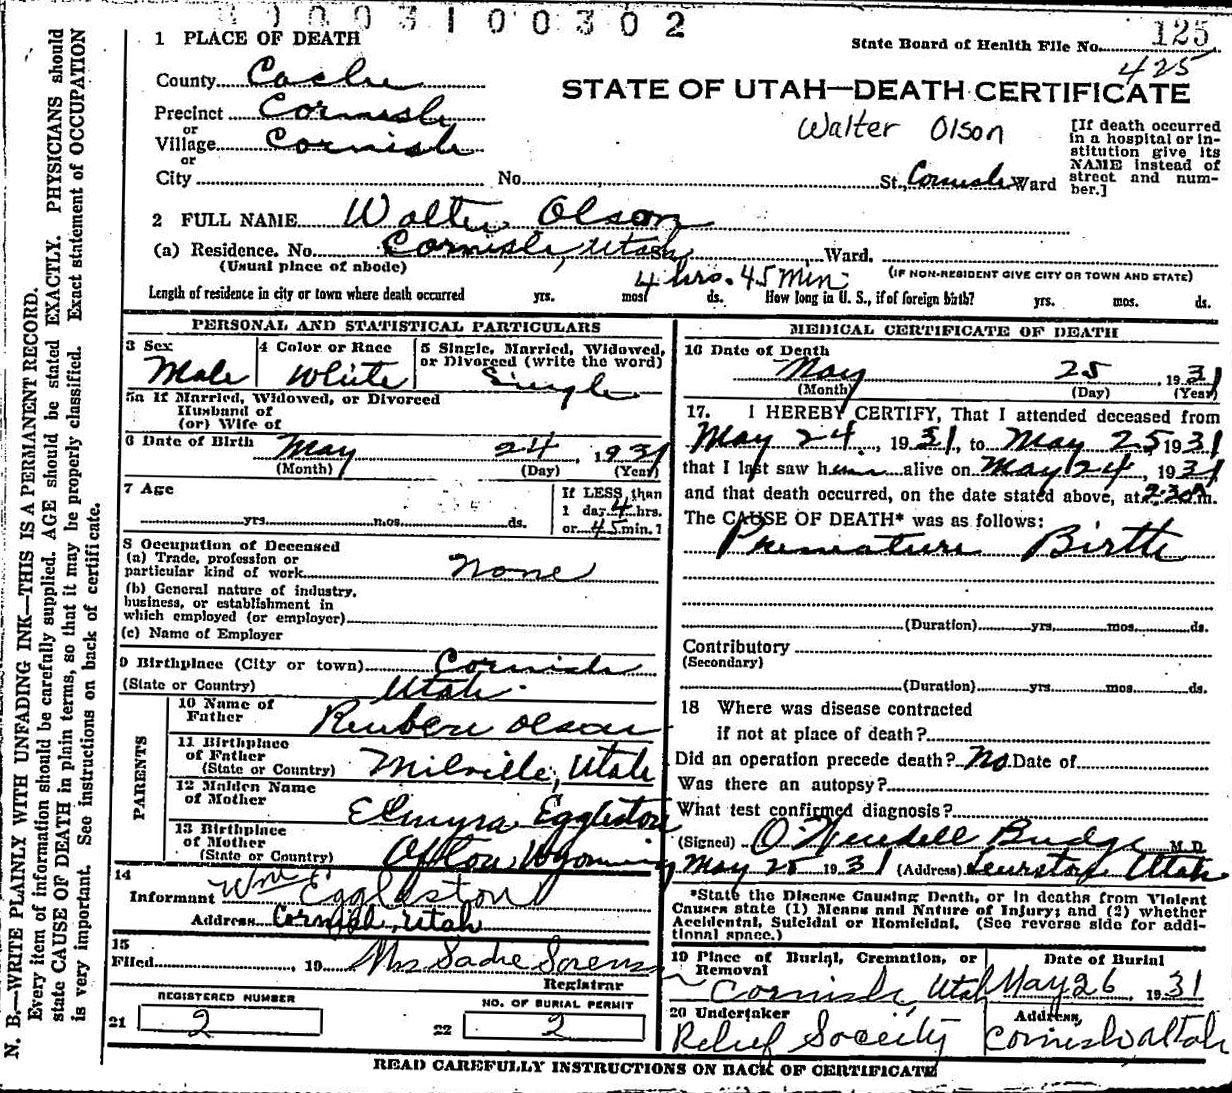 0000 3 1 0 0 3 0 2
1 PLACE OF DEATH
State Board of Health File No. 125
425
County Cache
STATE OF UTAH—DEATH CERTIFICATE
Precinct Cornish
or
Walter Olson
Village Cornish
or
City No. St., Cornish Ward
[If death occurred in a hospital or in-
stitution give its
NAME instead of
street and num-
ber.]
2 FULL NAME Walter Olson
(a) Residence. No. Cornish, Utah Ward.
(Usual place of abode)
(IF NON-RESIDENT GIVE CITY OR TOWN AND STATE)
4 hrs. 45 min.
Length of residence in city or town where death occurred yrs. mos. ds. How long in U. S., if of foreign birth? yrs. mos. ds.
PERSONAL AND STATISTICAL PARTICULARS
3 Sex
Male
4 Color or Race
White
5 Single, Married, Widowed,
or Divorced (write the word)
Single
5a If Married, Widowed, or Divorced
Husband of
(or) Wife of
6 Date of Birth May 24, 1931
(Month) (Day) (Year)
7 Age
yrs. mos. ds.
If LESS than
1 day 4 hrs.
or 45 min.?
8 Occupation of Deceased
(a) Trade, profession or
particular kind of work None
(b) General nature of industry,
business, or establishment in
which employed (or employer)
(c) Name of Employer
9 Birthplace (City or town) Cornish
(State or Country) Utah.
PARENTS
10 Name of
Father Reuben Olson
11 Birthplace
of Father
(State or Country) Milville, Utah
12 Maiden Name
of Mother
Elmyra Eggleston
13 Birthplace
of Mother
(State or Country) Afton, Wyoming
14
Informant Wm E Eggleston
Address Cornish, Utah
15
Filed , 19 Mrs Sadie Sorensen
Registrar
REGISTERED NUMBER
21 2
NO. OF BURIAL PERMIT
22 2
MEDICAL CERTIFICATE OF DEATH
16 Date of Death
May 25, 1931
(Month) (Day) (Year)
17. I HEREBY CERTIFY, That I attended deceased from
May 24, 1931, to May 25 1931
that I last saw him alive on May 24, 1931
and that death occurred, on the date stated above, at 2:30 A m.
The CAUSE OF DEATH* was as follows:
Premature Birth
(Duration) yrs. mos. ds.
Contributory
(Secondary)
(Duration) yrs. mos. ds.
18 Where was disease contracted
if not at place of death?
Did an operation precede death? No Date of
Was there an autopsy?
What test confirmed diagnosis?
(Signed) O. Wendell Budge M. D.
May 25 1931 (Address) Lewiston, Utah
*State the Disease Causing Death, or in deaths from Violent
Causes state (1) Means and Nature of Injury; and (2) whether
Accidental, Suicidal or Homicidal. (See reverse side for addi-
tional space.)
19 Place of Burial, Cremation, or
Removal
Cornish, Utah
Date of Burial
May 26, 1931
20 Undertaker
Relief Soceity
Address,
Cornish Utah
READ CAREFULLY INSTRUCTIONS ON BACK OF CERTIFICATE
N. B.—WRITE PLAINLY WITH UNFADING INK—THIS IS A PERMANENT RECORD.
Every item of information should be carefully supplied. AGE should be stated EXACTLY. PHYSICIANS should
state CAUSE OF DEATH in plain terms, so that it may be properly classified. Exact statement of OCCUPATION
is very important. See instructions on back of certificate.